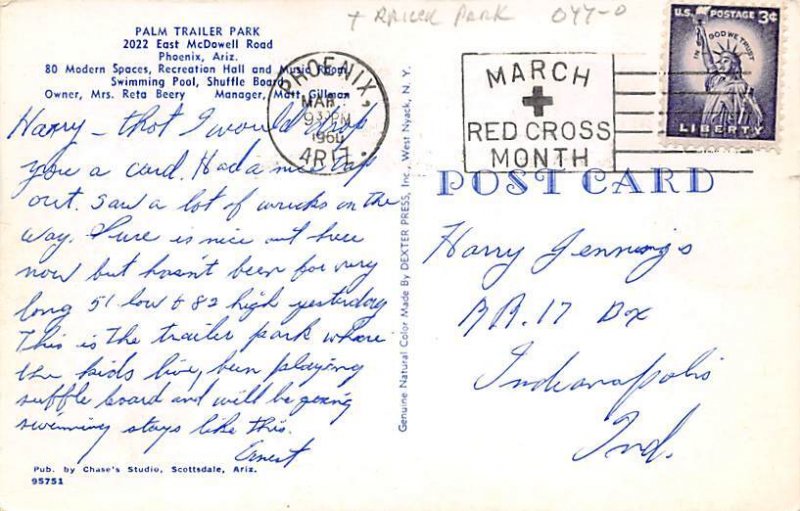 + Railer Park 044-0
PALM TRAILER PARK
2022 East McDowell Road
Phoenix, Ariz.
80 Modern Spaces, Recreation Hall and Music Room,
Swimming Pool, Shuffle Board
Owner, Mrs. Reta Beery Manager, Matt Gillman
Harry – thot I would drop
you a card. Had a nice trip
out. Saw a lot of wrecks on the
way. Sure is nice out here
now but hasn't been for very
long 51 low & 82 high yesterday
This is the trailer park where
the kids live, been playing
suffle board and will be going
swimming stays like this.
Ernest
Pub. by Chase's Studio, Scottsdale, Ariz.
95751
Genuine Natural Color Made By DEXTER PRESS, Inc., West Nyack, N. Y.
PHOENIX,
MAR
9 3 PM
1960
ARIZ.
MARCH
RED CROSS
MONTH
U.S. POSTAGE 3¢
IN GOD WE TRUST
LIBERTY
POST CARD
Harry Jennings
RR. 17 Box
Indianapolis
Ind.